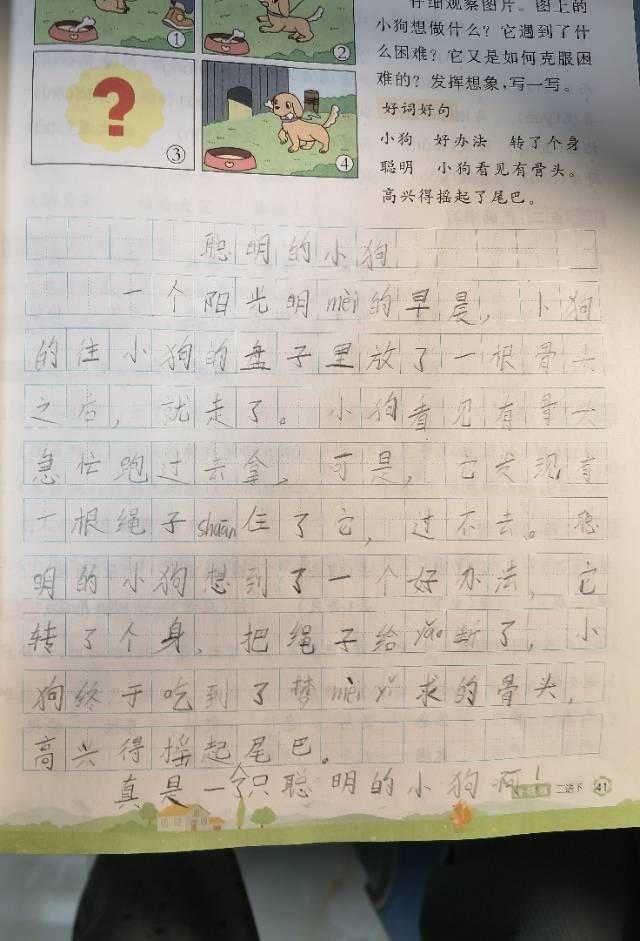 仔细观察图片。图上的
小狗想做什么？它遇到了什
么困难？它又是如何克服困
难的？发挥想象，写一写。
好词好句
小狗 好办法 转了个身
聪明 小狗看见有骨头。
高兴得摇起了尾巴。
①
②
?
③
④
聪明的小狗
一个阳光明mèi的早晨，小狗
的往小狗的盘子里放了一根骨头
之后，就走了。小狗看见有骨头
急忙跑过去拿，可是，它发现有
一根绳子shuān住了它，过不去。聪
明的小狗想到了一个好办法，它
转了个身，把绳子给yǎo断了，小
狗终于吃到了梦mèi yǐ求的骨头，
高兴得摇起尾巴。
真是一只聪明的小狗啊！
二语下 41